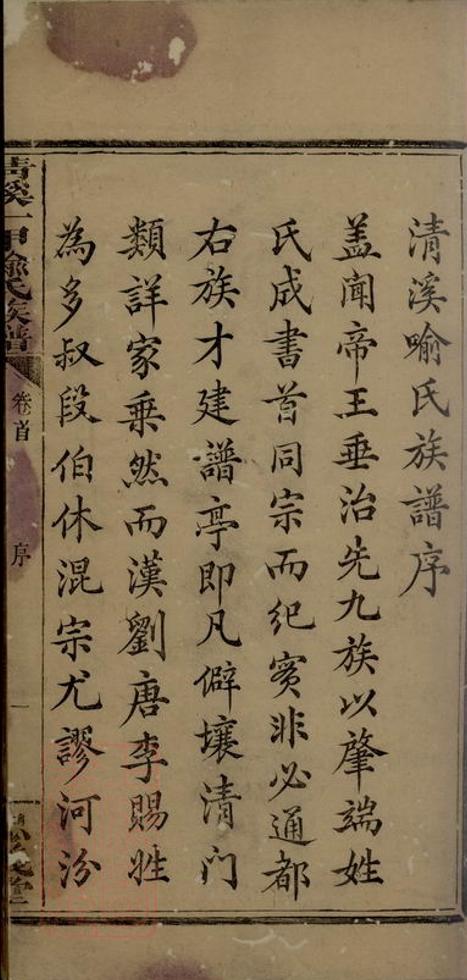 清溪喻氏族譜序
盖聞帝王垂治先九族以肇端姓
氏成書首同宗而紀實非必通都
右族才建譜亭即凡僻壤清门
類詳家乗然而漢劉唐李賜姓
為多叔段伯休混宗尤謬河汾
清溪一甲喻氏族譜
卷首
序
一
堂